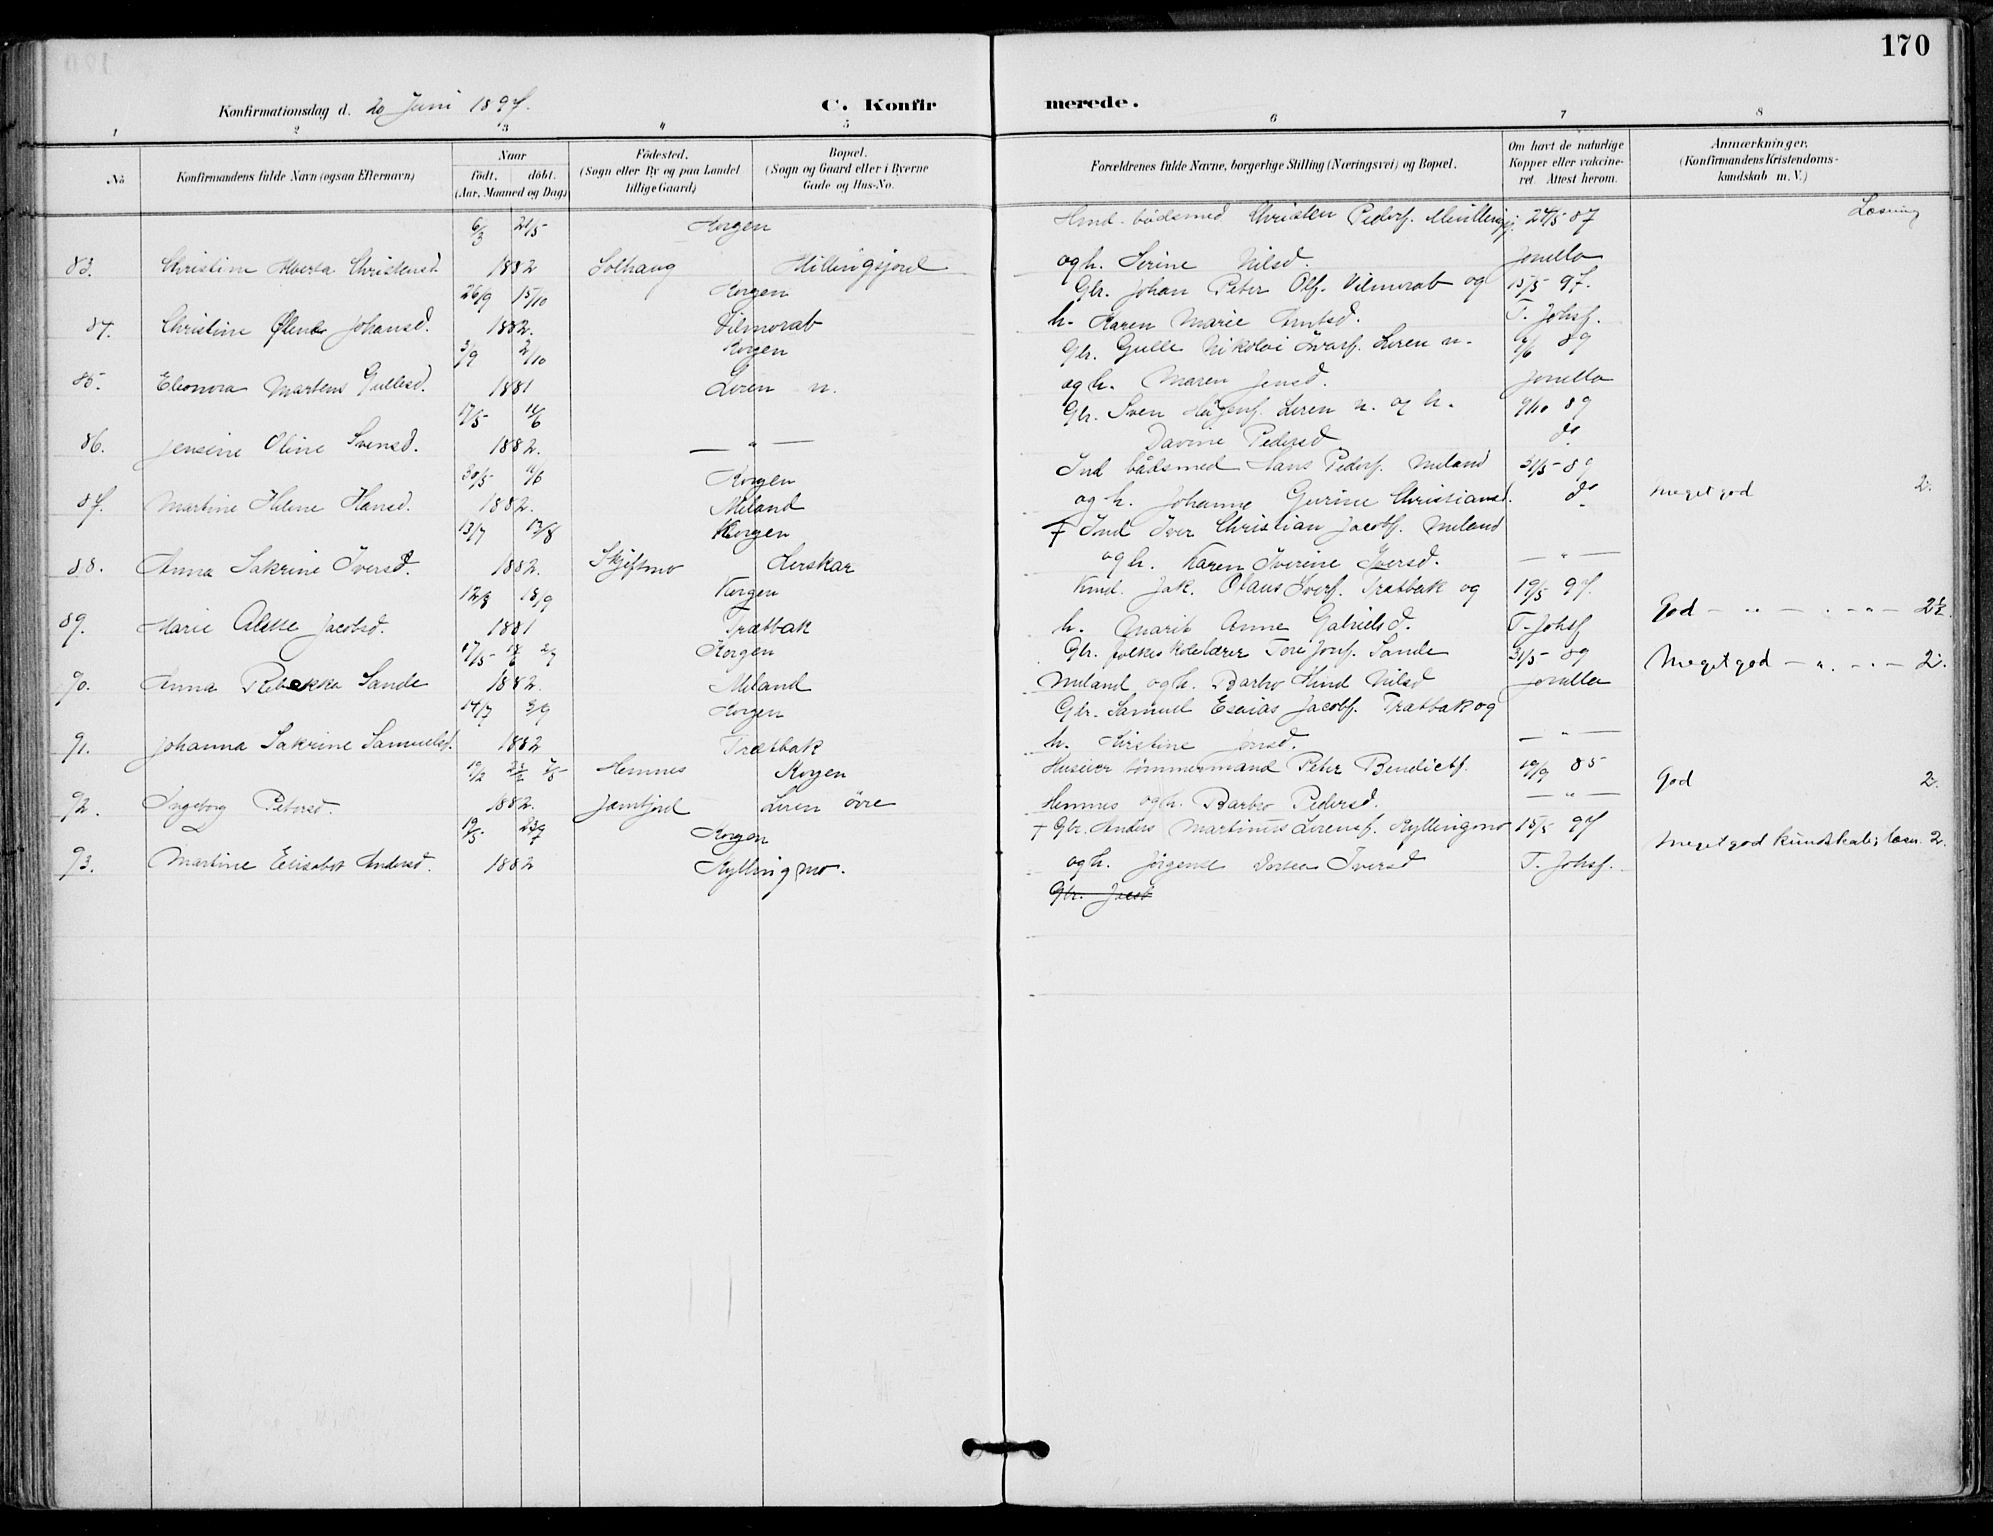 170
Konfirmationsdag d. 20 Juni 1897.
C. Konfir merede.
1 2 3 4 5 6 7 8
No
Konfirmandens fulde Navn (ogsaa Efternavn)
Naar
født. døbt.
(Aar, Maaned og Dag)
Fødested.
(Sogn eller By og paa Landet
tillige Gaard)
Bopæl.
(Sogn og Gaard eller i Byerne
Gade og Hus-No.
Forældrenes fulde Navne, borgerlige Stilling (Næringsvei) og Bopæl.
Om havt de naturlige
Kopper eller vakcine-
ret. Attest herom.
Anmærkninger.
(Konfirmandens Kristendoms-
kundskab m. V.)
Læsning
6/3 21/5 Korgen bådsmed Christen Peders. 24/5 87
83. Christine Alberta Christensd. 1882 Solhaug og h. Serine Nilsd. Jonella
26/9 15/10 Korgen Gbr. Johan Peter Ols. Vilmorab og 15/5 97.
84. Christine Johansd. 1882. Vilmorab h. Karen Marie T. Johsf.
3/9 2/10 Korgen Gbr. Gulle Nikolai Leren n. 89
85. Eleonora Martens Gullesd. 1881 Leren n. og h. Maren Jensd. Jonella
17/5 11/6 Gbr. Sven Leren n. og h. 9/10 89
86. Jensine Oline Svensd. 1882. — " — Davine Pedersd do
30/5 11/6 Korgen Ind bådsmed Hans Peders. Miland 31/5 89
87. Martine Helene Hansd. 1882. Miland og h. Johanne Gurine Christiansd. do Meget god 2.
13/7 13/8 Korgen † Ind Iver Christian Jacobs. Miland
88. Anna Sakrine Iversd. 1882. Skjiftmo Lerskar og h. Karen Iverine Iversd. — " —
12/8 18/9 Korgen Jak. Olaus Ivers. Trætbak og 19/5 97.
89. Marie Alette Jacobsd. 1881 Trætbak h. Marit Anne Gabrielsd. T. Johsf God — " — " — 2½.
17/5 Korgen Gbr. folkeskolelærer Tore Jons. Sande 31/5 89
90. Anna Rebekka Sande 1882. Miland Miland og h. Barbro Nilsd Jonella Meget god — " — 2.
14/7 3/9 Korgen Gbr. Samuel Esaias Jacobs. Trætbak og
91. Johanna Sakrine Samuelsd. 1882 Trætbak h. Kirstine Jonsd. — " —
Hemnes Korgen Huseier tømmermand Peter Bendicts. 19/9 85
92. Ingeborg Petersd. 1882. Jamtjord Leren øvre Hemnes og h. Barbro Pedersd. — " — God 2.
19/5 23/7 Korgen † Gbr. Anders Martinus Lorens. Kyllingmo 15/5 97
93. Martine Elisabet Andersd. 1882 Kyllingmo. og h. Jørgense Iversd T. Johsf. Meget god kundskab; læsn. 2.
Gbr. Jacob